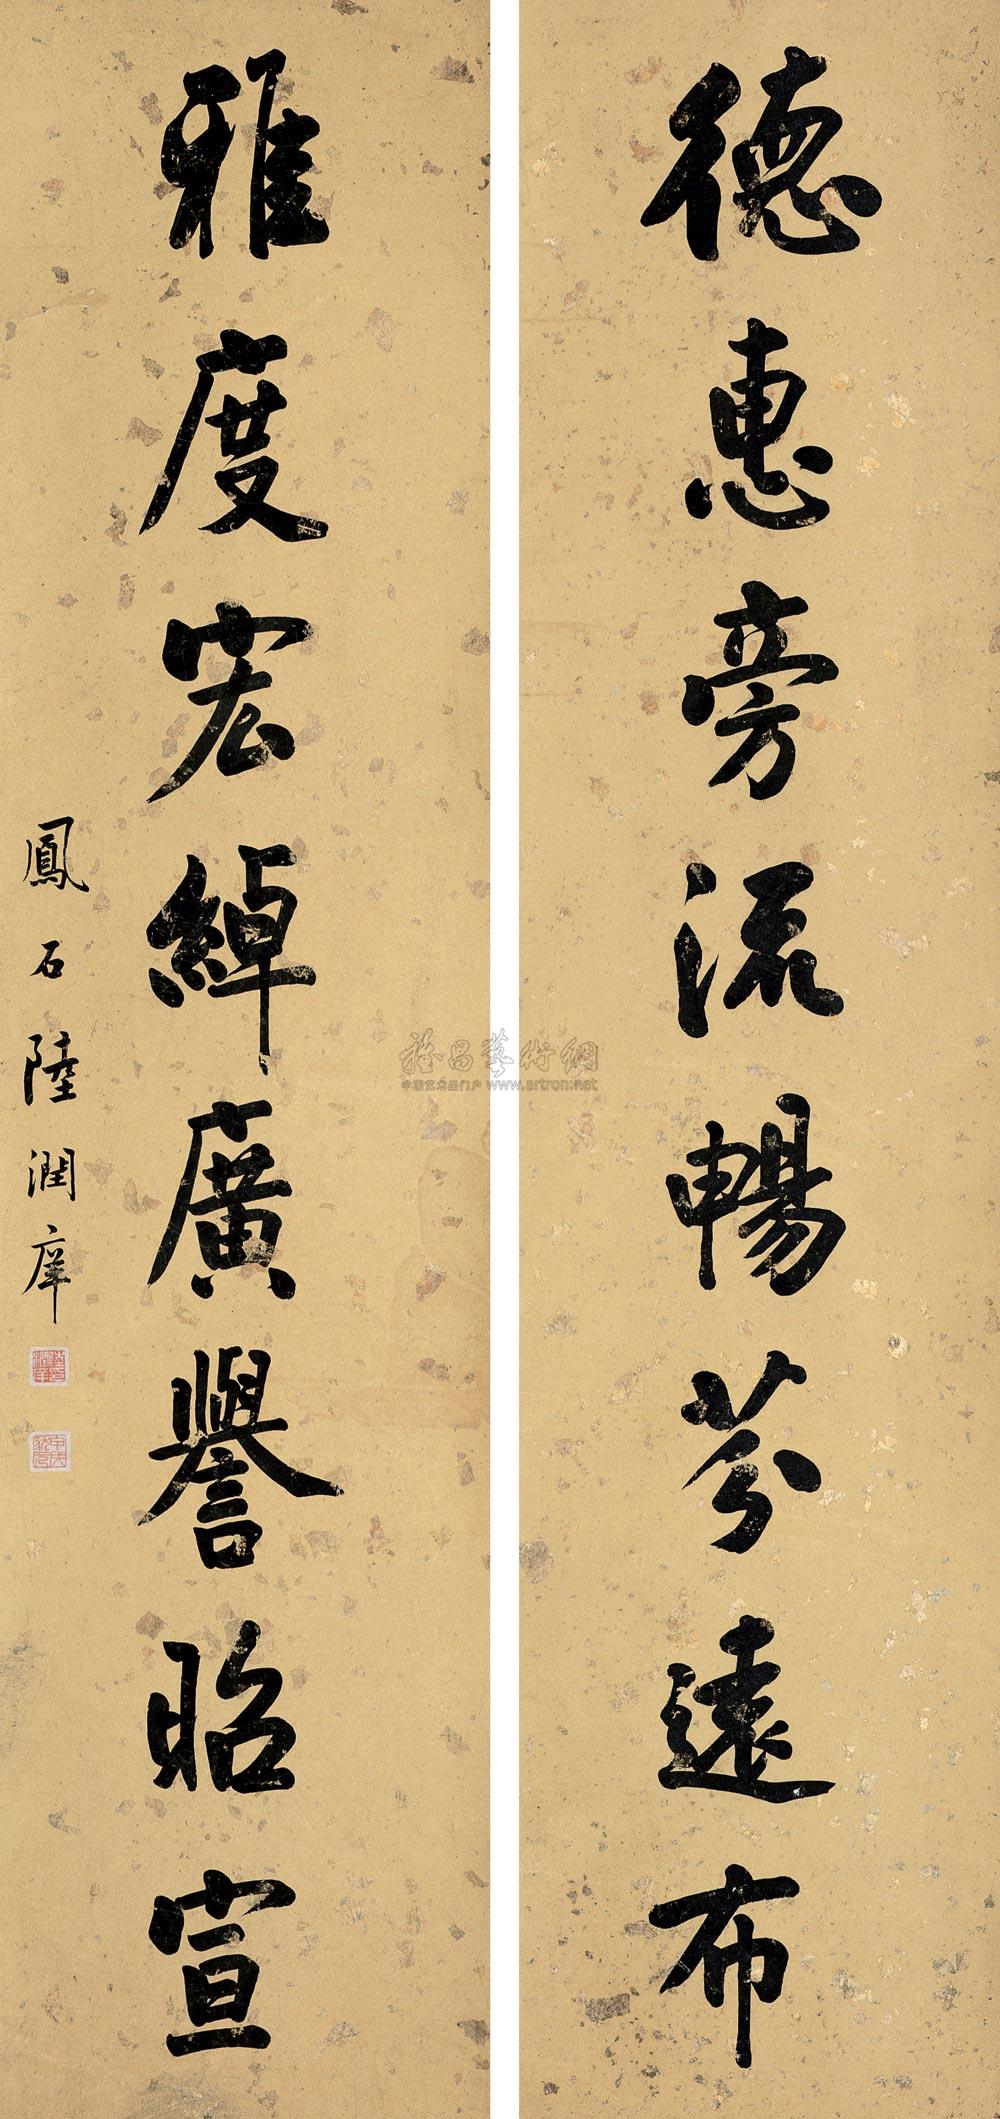 德惠旁流暢芬遠布
雅度宏綽廣譽昭宣
鳳石陸潤庠
雅昌藝術網
中国艺术品门户 www.artron.net